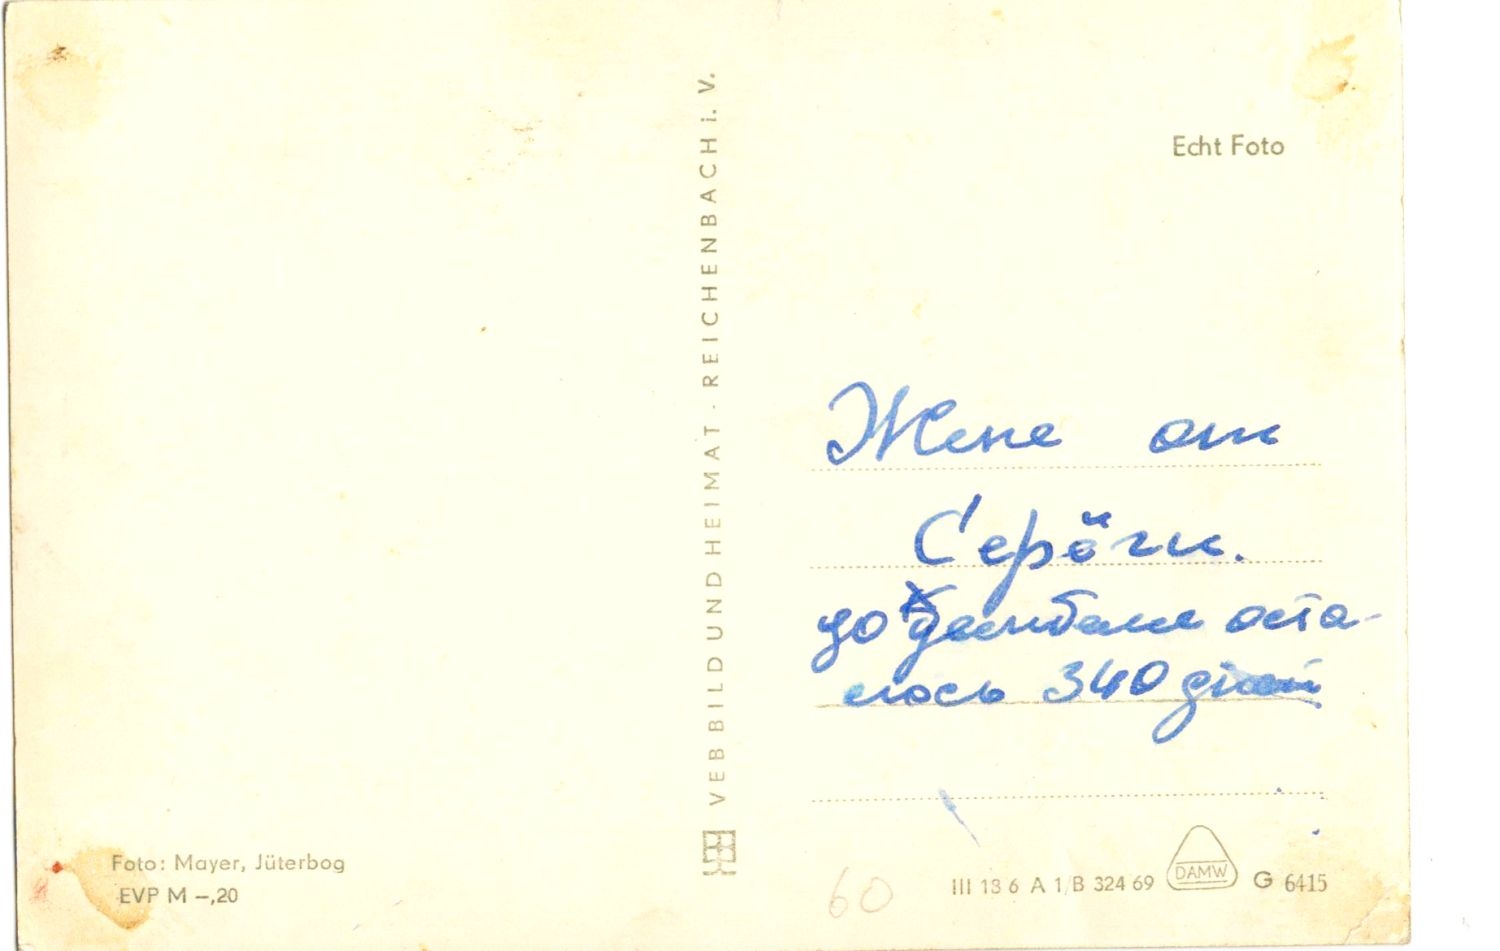 Echt Foto
VEB BILD UND HEIMAT · REICHENBACH i. V.
Жене от
Серёги.
до дембеля оста-
лось 340 дней
Foto: Mayer, Jüterbog
EVP M –,20
60
III 13 6 A 1/B 324 69 DAMW G 6415